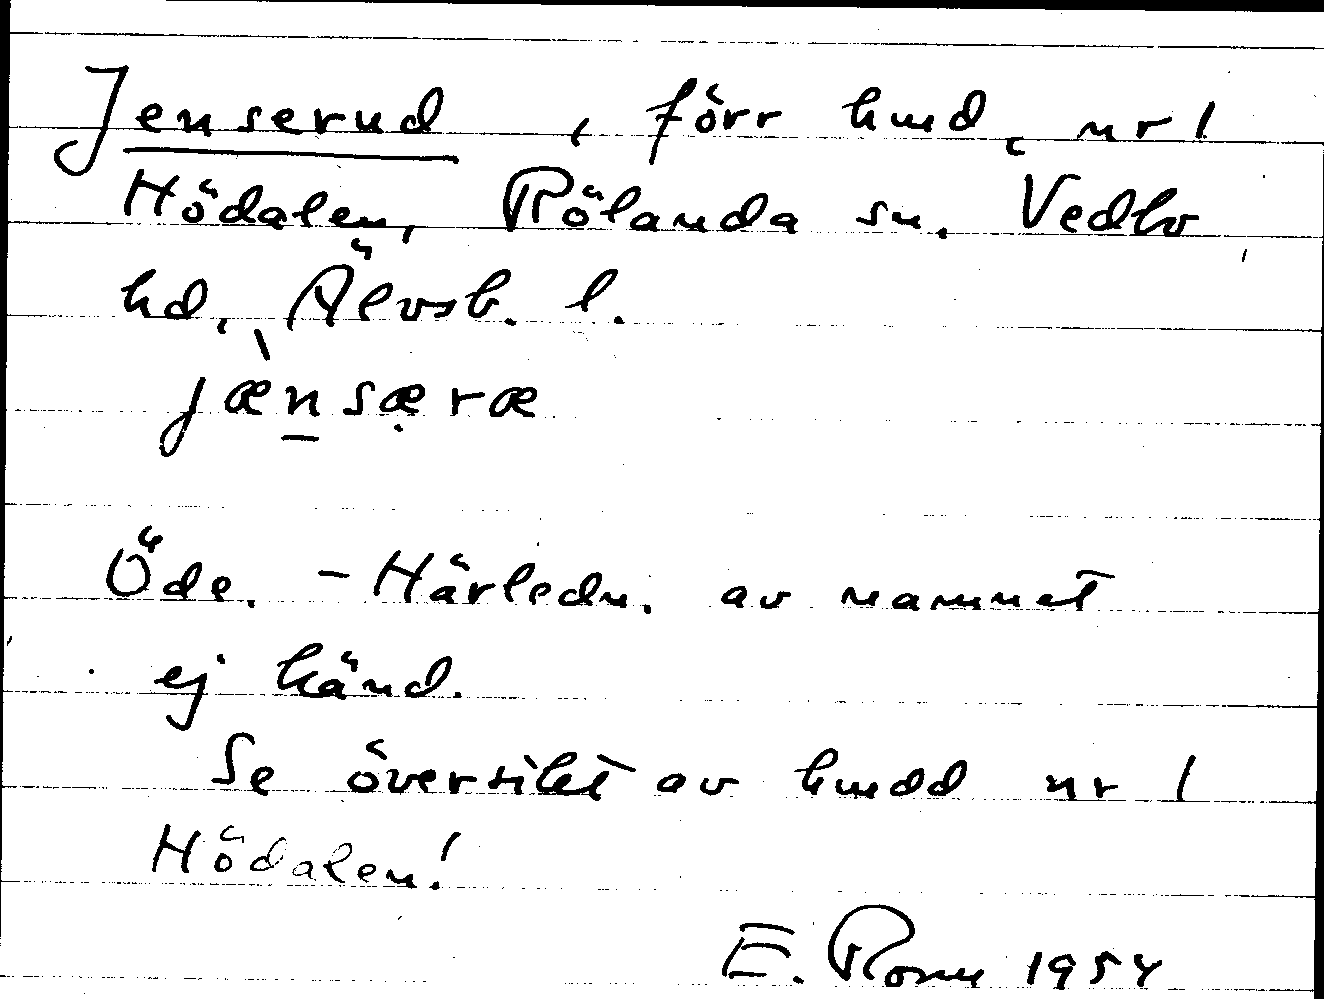 Jenserud, förr hmd. nr 1
Hödalen, Rölanda sn. Vedbo
hd. Älvsb. l.
jæ̀n̲sæ̣ræ
Öde. - Härledn. av namnet
ej känd.
Se översikt av hmdd nr 1
Hödalen!
E. 1954